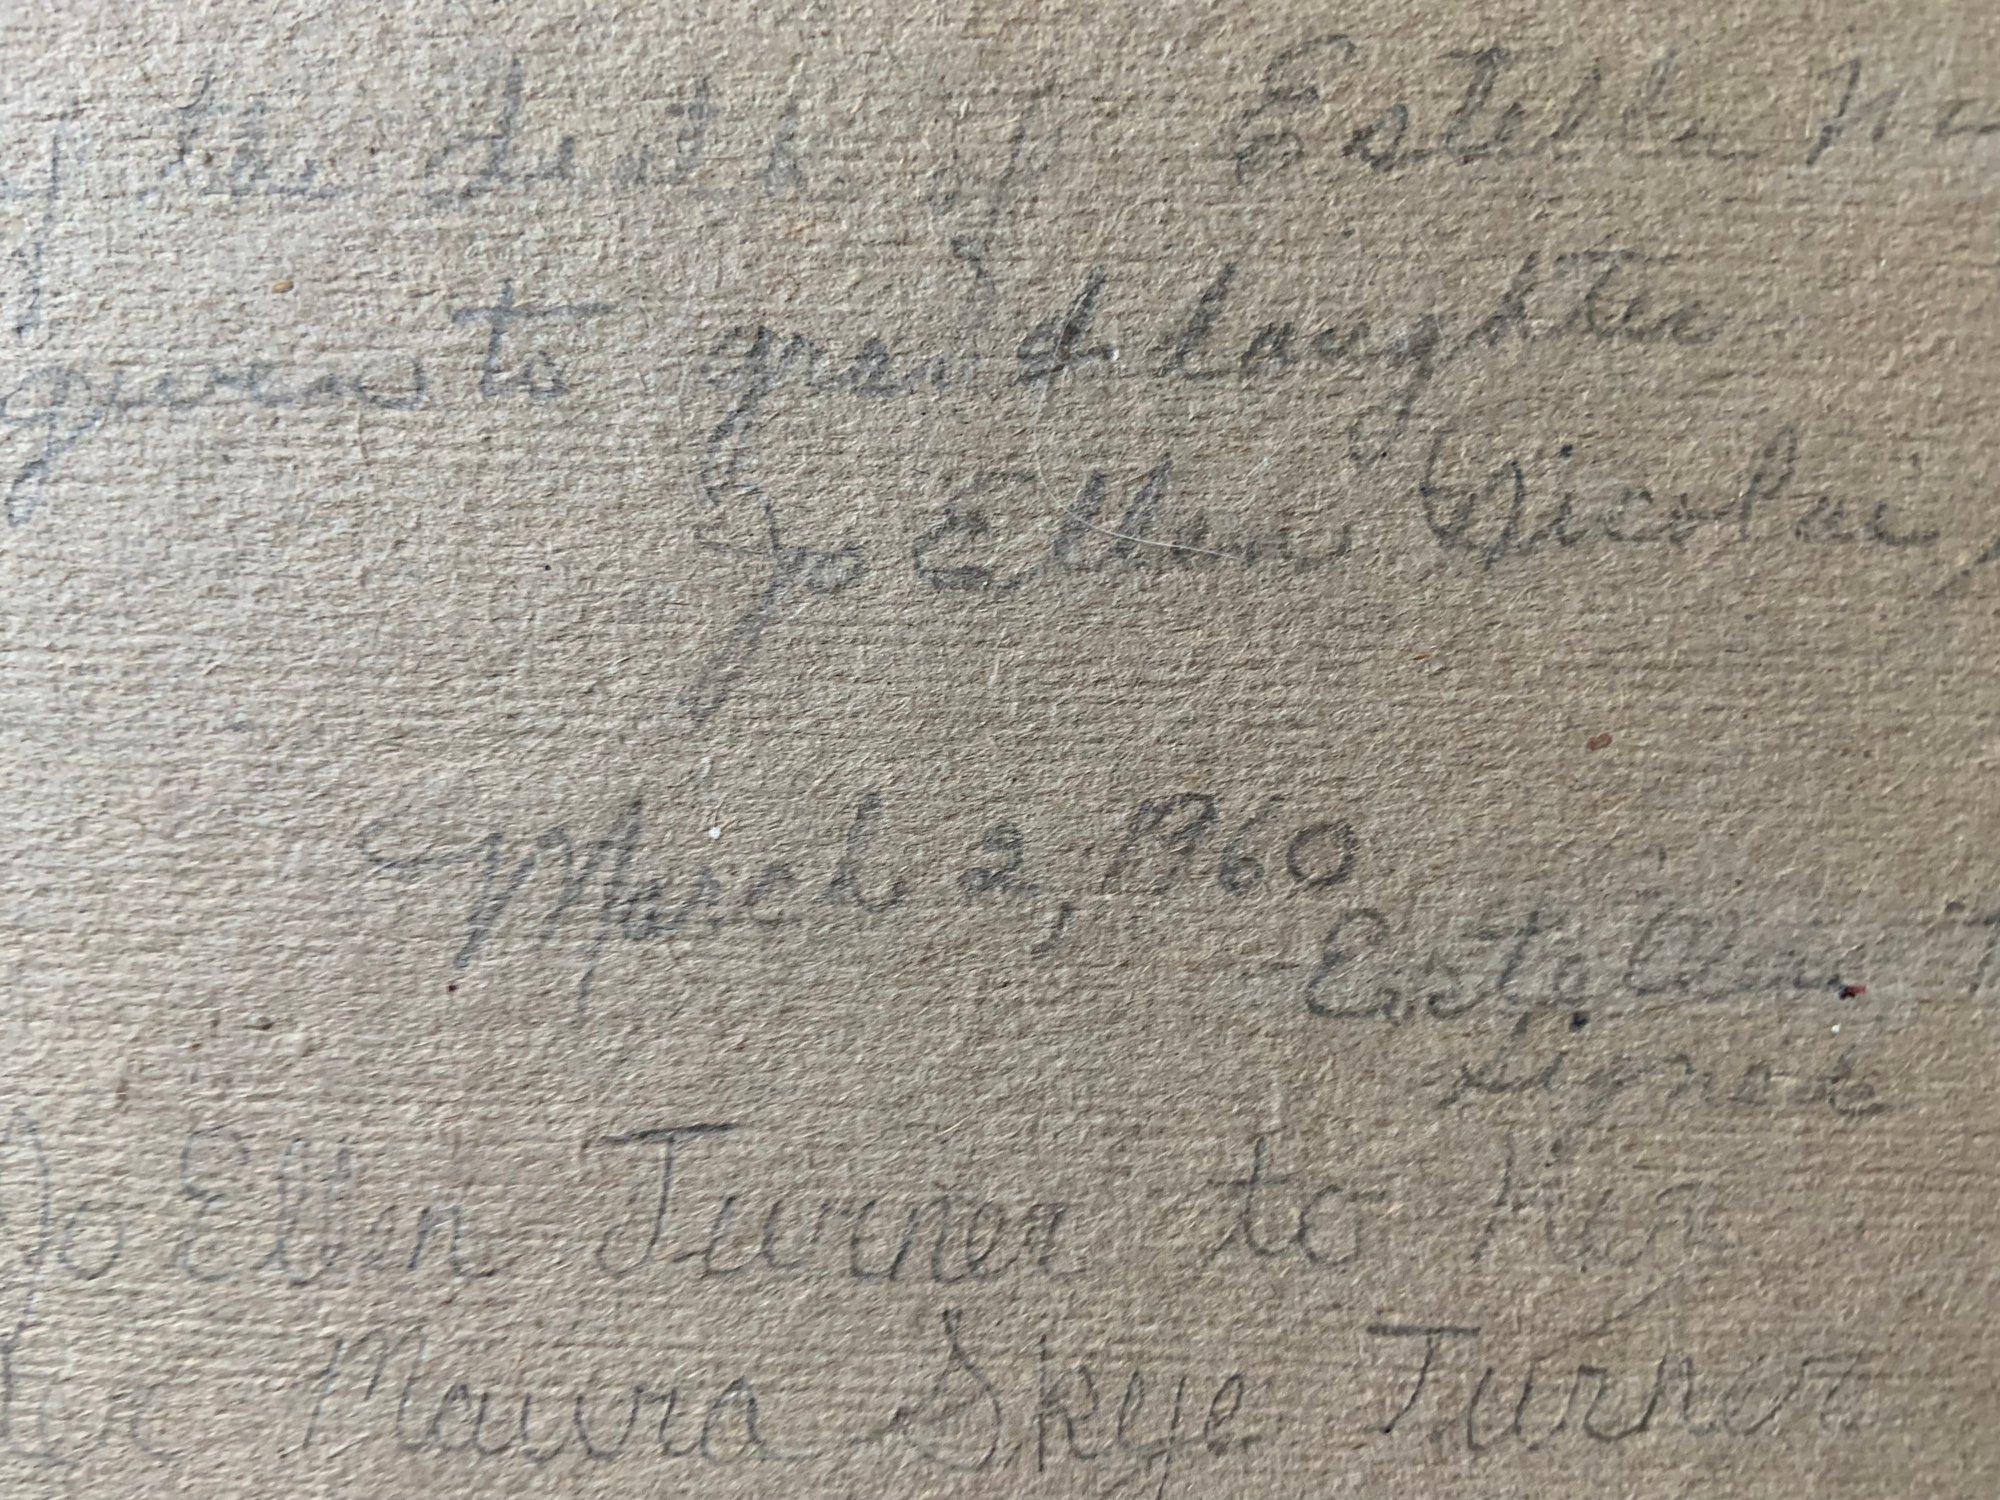 the death of Estelle
given to granddaughter
Jo Ellen Nicolai,
March 2, 1960
Estella
signed
Jo Ellen Turner to her
Maura Skye Turner